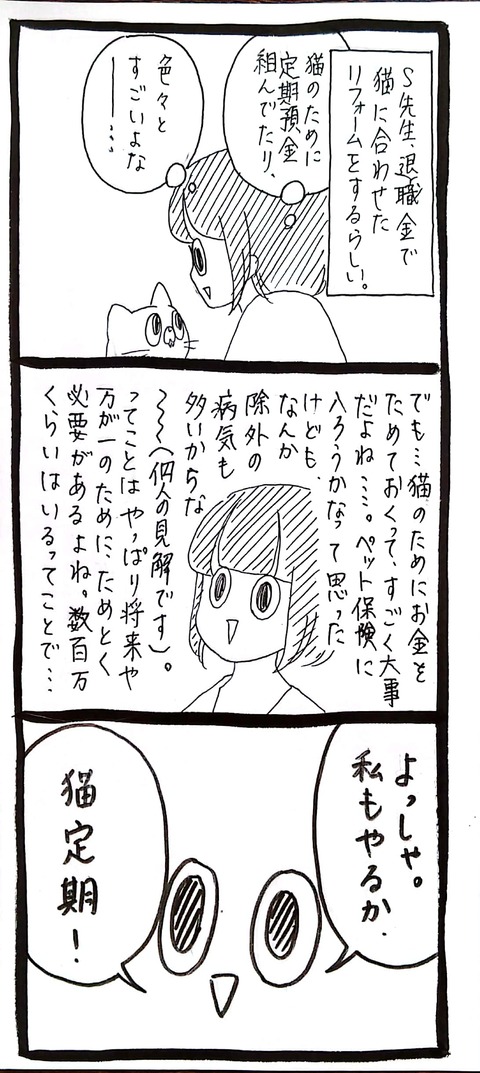 S先生、退職金で
猫に合わせた
リフォームをするらしい。
猫のために
定期預金
組んでたり、
色々と
すごいよな
ー…
でも…猫のためにお金を
ためておくって、すごく大事
だよね…。ペット保険に
入ろうかなって思った
けども、
なんか
除外の
病気も
多いからな
〜〜(個人の見解です)。
ってことはやっぱり将来や
万が一のために、ためとく
必要があるよね。数百万
くらいはいるってことで…
よっしゃ。
私もやるか、
猫定期!